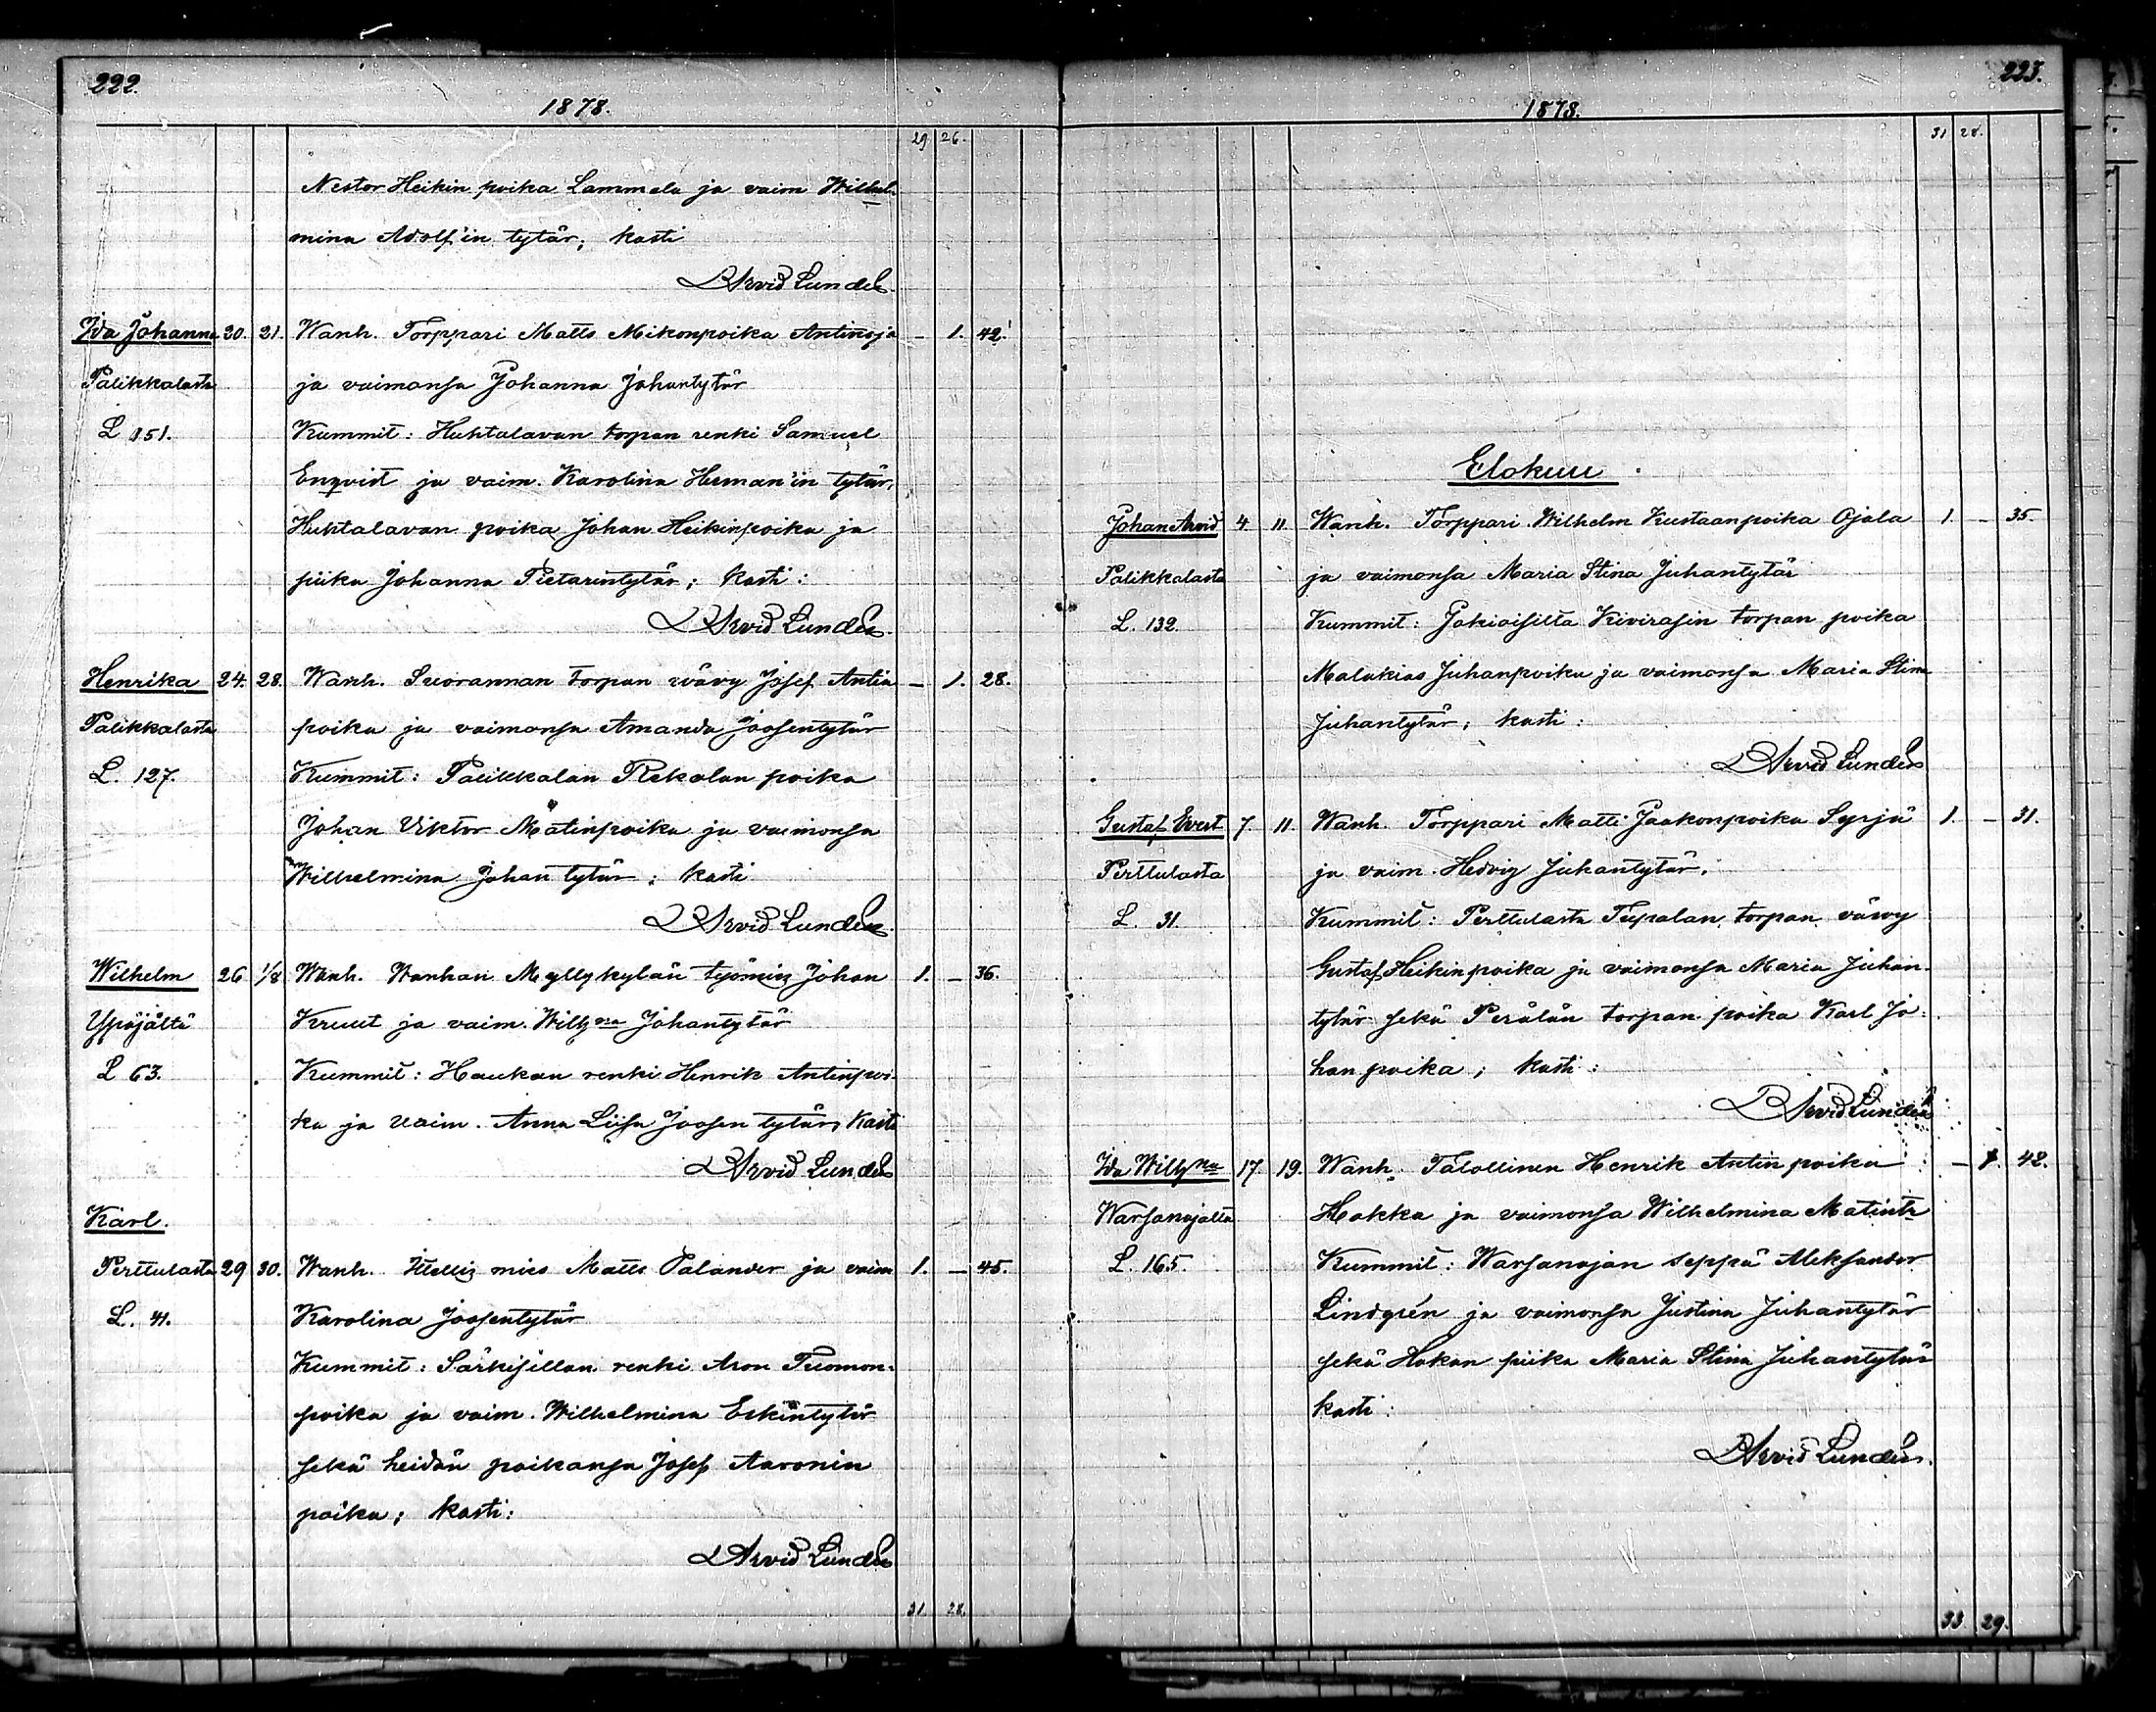 222.
1878.
29 26.
Nestor Heikin poika Lammela ja vaim Wilhel-
mina Adolf'in tytär; kasti
Arvid Lundén.
Ida Johanna 20. 21. Wanh. Torppari Matts Mikonpoika Antinoja — 1. 42.
Palikkalasta ja vaimonsa Johanna Juhantytär
L 151. Kummit: Huhtalavan torpan renki Samuel
Enqvist ja vaim. Karolina Herman'in tytär,
Huhtalavan poika Johan Heikinpoika ja
piika Johanna Pietarintytär; kasti:
Arvid Lundén.
Henrika 24. 28. Wanh. Suorannan torpan wävy Josef Antin — 1. 28.
Palikkalasta poika ja vaimonsa Amanda Joosentytär
L. 127. Kummit: Palikkalan Rekolan poika
Johan Viktor Matinpoika ja vaimonsa
Wilhelmina Johan tytär; kasti
Arvid Lundén.
Wilhelm 26 1/8 Wanh. Wanhan Myllykylän työmies Johan 1. — 36.
Ypäjältä Kruut ja vaim. Wilhna Johantytär
L 63. Kummit: Haukan renki Henrik Antinpoi-
ka ja vaim. Anna Liisa Joosen tytär, kasti
Arvid Lundén
Karl.
Perttulasta 29 30. Wanh. Itellis mies Matts Palander ja vaim 1. — 45.
L. 41. Karolina Joosentytär
Kummit: Särkisillan renki Aron Tuomon-
poika ja vaim. Wilhelmina Eskintytär
sekä heidän poikansa Josef Aaronin
poika; kasti:
Arvid Lundén
31. 28.
223.
1878.
31 28.
Elokuu
Johan Arvid 4 11. Wanh. Torppari Wilhelm Kustaanpoika Ojala 1. — 35.
Palikkalasta ja vaimonsa Maria Stina Juhantytär
L. 132. Kummit: Jokioisilta Kivirasin torpan poika
Malakias Juhanpoika ja vaimonsa Maria Stina
Juhantytär; kasti:
Arvid Lundén
Gustaf Evert 7. 11. Wanh. Torppari Matti Jaakonpoika Syrjä 1. — 31.
Perttulasta ja vaim. Hedvig Juhantytär.
L. 31. Kummit: Perttulasta Tupalan torpan vävy
Gustaf Heikinpoika ja vaimonsa Maria Juhan-
tytär sekä Perälän torpan poika Karl Jo-
hanpoika; kasti:
Arvid Lundén
Ida Wilhna 17. 19. Wanh. Talollinen Henrik Antin poika — 1. 42.
Warsanojalta Hakka ja vaimonsa Wilhelmina Matintr
L. 165. Kummit: Warsanojan seppä Aleksander
Lindgrén ja vaimonsa Justina Juhantytär
sekä Hakan piika Maria Stina Juhantytär
kasti:
Arvid Lundén.
33. 29.